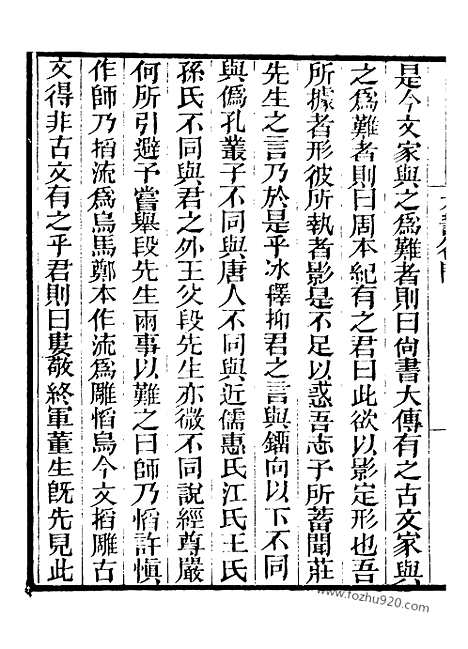 是今文家與之爲難者則曰尙書大傳有之古文家與
之爲難者則曰周本紀有之君曰此欲以影定形也吾
所據者形彼所執者影是不足以惑吾志予所蓄聞莊
先生之言乃於是乎冰釋抑君之言與鐂向以下不同
與僞孔叢子不同與唐人不同與近儒惠氏江氏王氏
孫氏不同與君之外王父段先生亦微不同說經尊嚴
何所引避予嘗舉段先生兩事以難之曰師乃慆許愼
作師乃搯流爲烏馬鄭本作流爲雕慆烏今文搯雕古
文得非古文有之乎君則曰婁敬終軍董生旣先見此
www.fozhu920.com